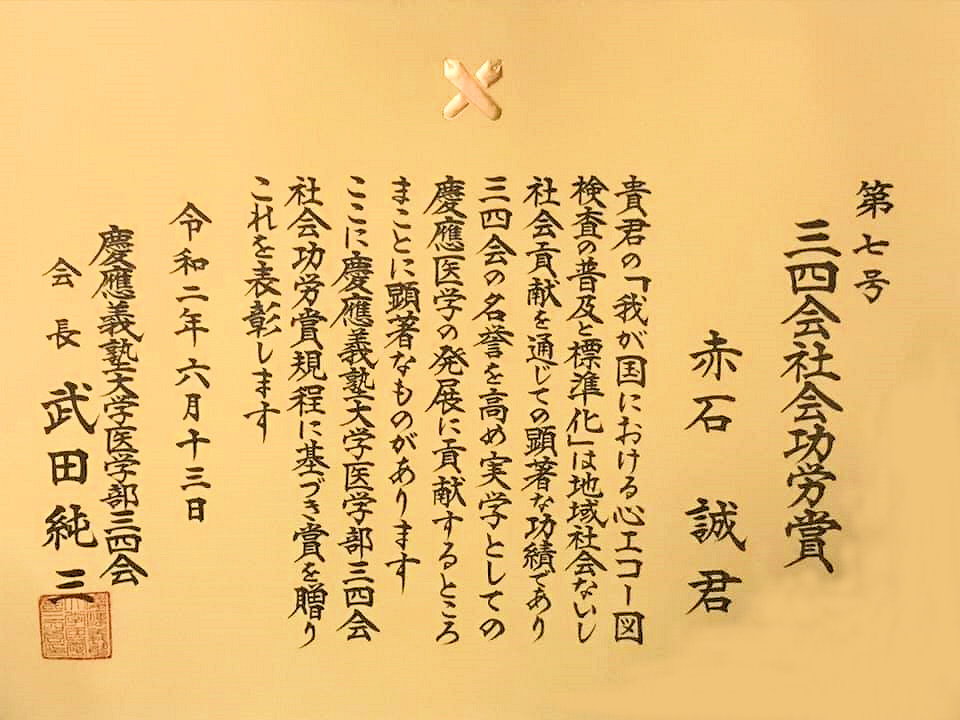 第七号
三四会社会功労賞
赤石 誠 君
貴君の「我が国における心エコー図
検査の普及と標準化」は地域社会ないし
社会貢献を通じての顕著な功績であり
三四会の名誉を高め実学としての
慶應医学の発展に貢献するところ
まことに顕著なものがあります
ここに慶應義塾大学医学部三四会
社会功労賞規程に基づき賞を贈り
これを表彰します
令和二年六月十三日
慶應義塾大学医学部三四会
会長 武田純三